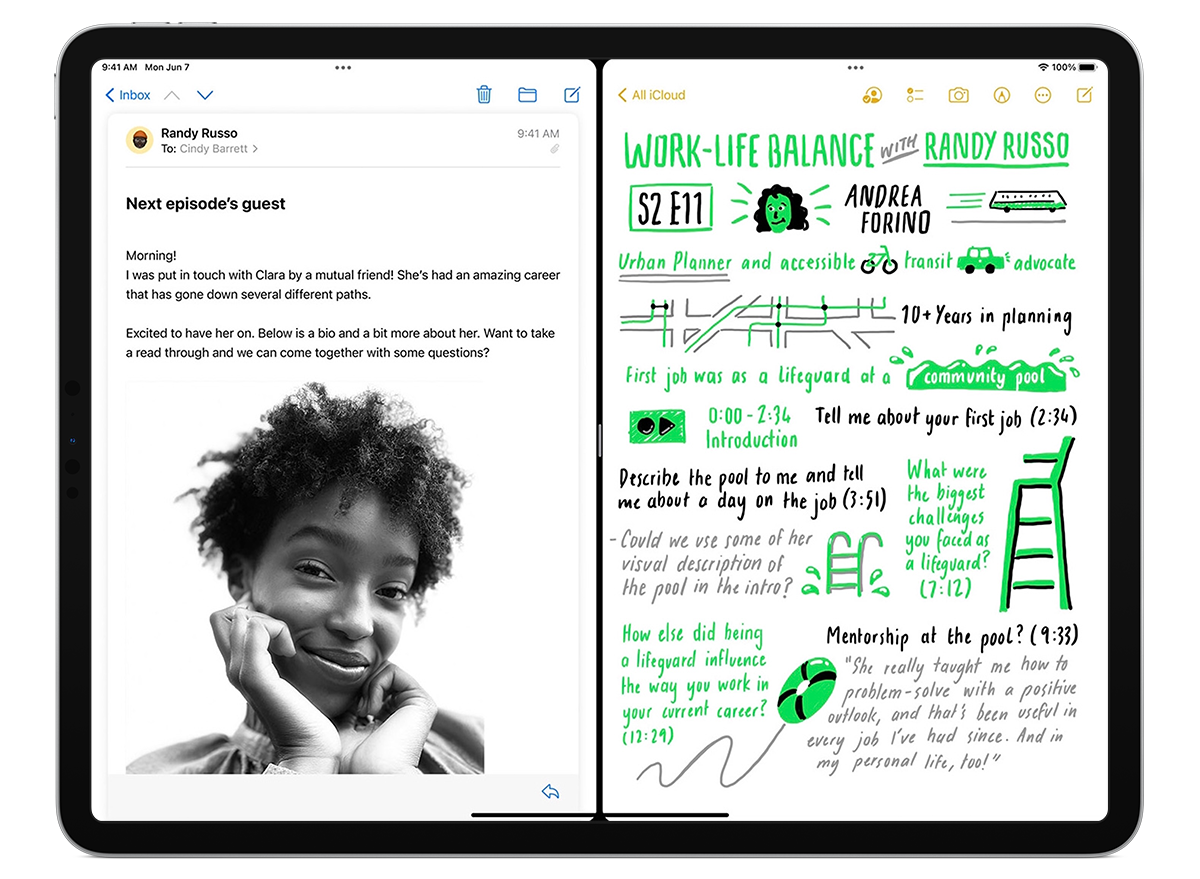 9:41 AM Mon Jun 7
Inbox
Randy Russo
9:41 AM
To: Cindy Barrett
Next episode's guest
Morning!
I was put in touch with Clara by a mutual friend! She's had an amazing career
that has gone down several different paths.
Excited to have her on. Below is a bio and a bit more about her. Want to take
a read through and we can come together with some questions?
100%
All iCloud
WORK-LIFE BALANCE WITH RANDY RUSSO
S2 E11
ANDREA
FORINO
Urban Planner and accessible transit advocate
10+ Years in planning
First job was as a lifeguard at a community pool
0:00 - 2:34
Introduction
Tell me about your first job (2:34)
Describe the pool to me and tell
me about a day on the job (3:51)
- Could we use some of her
visual description of
the pool in the intro?
What were
the biggest
challenges
you faced as
a lifeguard?
(7:12)
How else did being
a lifeguard influence
the way you work in
your current career?
(12:29)
Mentorship at the pool? (9:33)
"She really taught me how to
problem-solve with a positive
outlook, and that's been useful in
every job I've had since. And in
my personal life, too!"